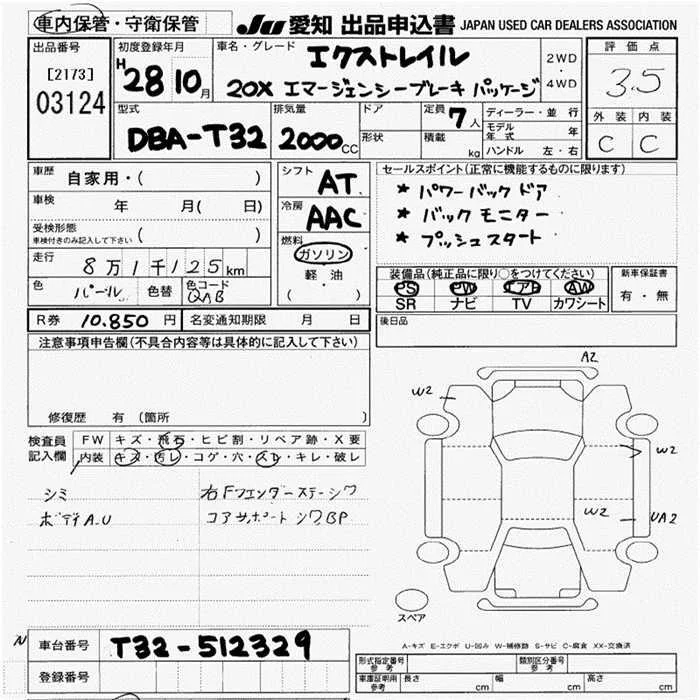 車内保管・守衛保管 JU 愛知 出品申込書 JAPAN USED CAR DEALERS ASSOCIATION
出品番号 [2173] 03124
初度登録年月 H28 10月
車名・グレード エクストレイル
20X エマージェンシーブレーキ パッケージ
2WD・4WD
評価点 3.5
型式 DBA-T32
排気量 2000CC
ドア
形状
定員 7人
積載 kg
ディーラー・並行
モデル年式 年
ハンドル 左・右
外装 内装
C C
車歴 自家用・( )
車検 年 月( 日)
受検形態 ( )
車検付きのみ記入して下さい
走行 8万1千125km
色 パール 色替 色コード QAB
シフト AT
冷房 AAC
燃料 ガソリン
軽油
( ・ )
セールスポイント(正常に機能するものに限ります)
* パワーバックドア
* バックモニター
* プッシュスタート
装備品(純正品に限り○をつけてください)
PS PW エアB AW
SR ナビ TV カワシート
新車保証書
有・無
R券 10.850円 名変通知期限 月 日
後日品
注意事項申告欄(不具合内容等は具体的に記入して下さい)
修復歴 有(箇所 )
検査員記入欄
FW キズ・飛石・ヒビ割・リペア跡・X要
内装 キズ・汚レ・コゲ・穴・スレ・キレ・破レ
シミ
ボディA.U
右Fフェンダーステーシワ
コアサポートシワBP
A2
W2
W2
W2
UA2
スペア
A-キズ E-エクボ U-凹み W-補修跡 S-サビ C-腐食 XX-交換済
N
車台番号 T32-512329
登録番号
型式指定番号 参考
類別区分番号 参考
車庫証明用 参考 長さ cm 幅 cm 高さ cm